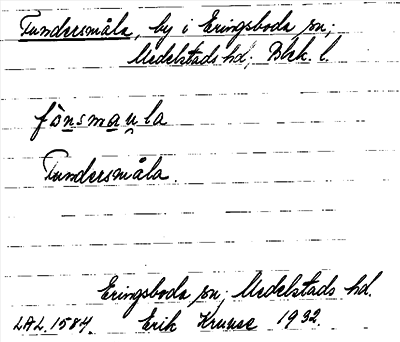 Tundersmåla, by i Eringsboda sn;
Medelstads hd; Blek. l.
fònsmau̯la
Tundersmåla.
Eringsboda sn; Medelstads hd.
LAL. 1584. Erik Kruuse 1932.